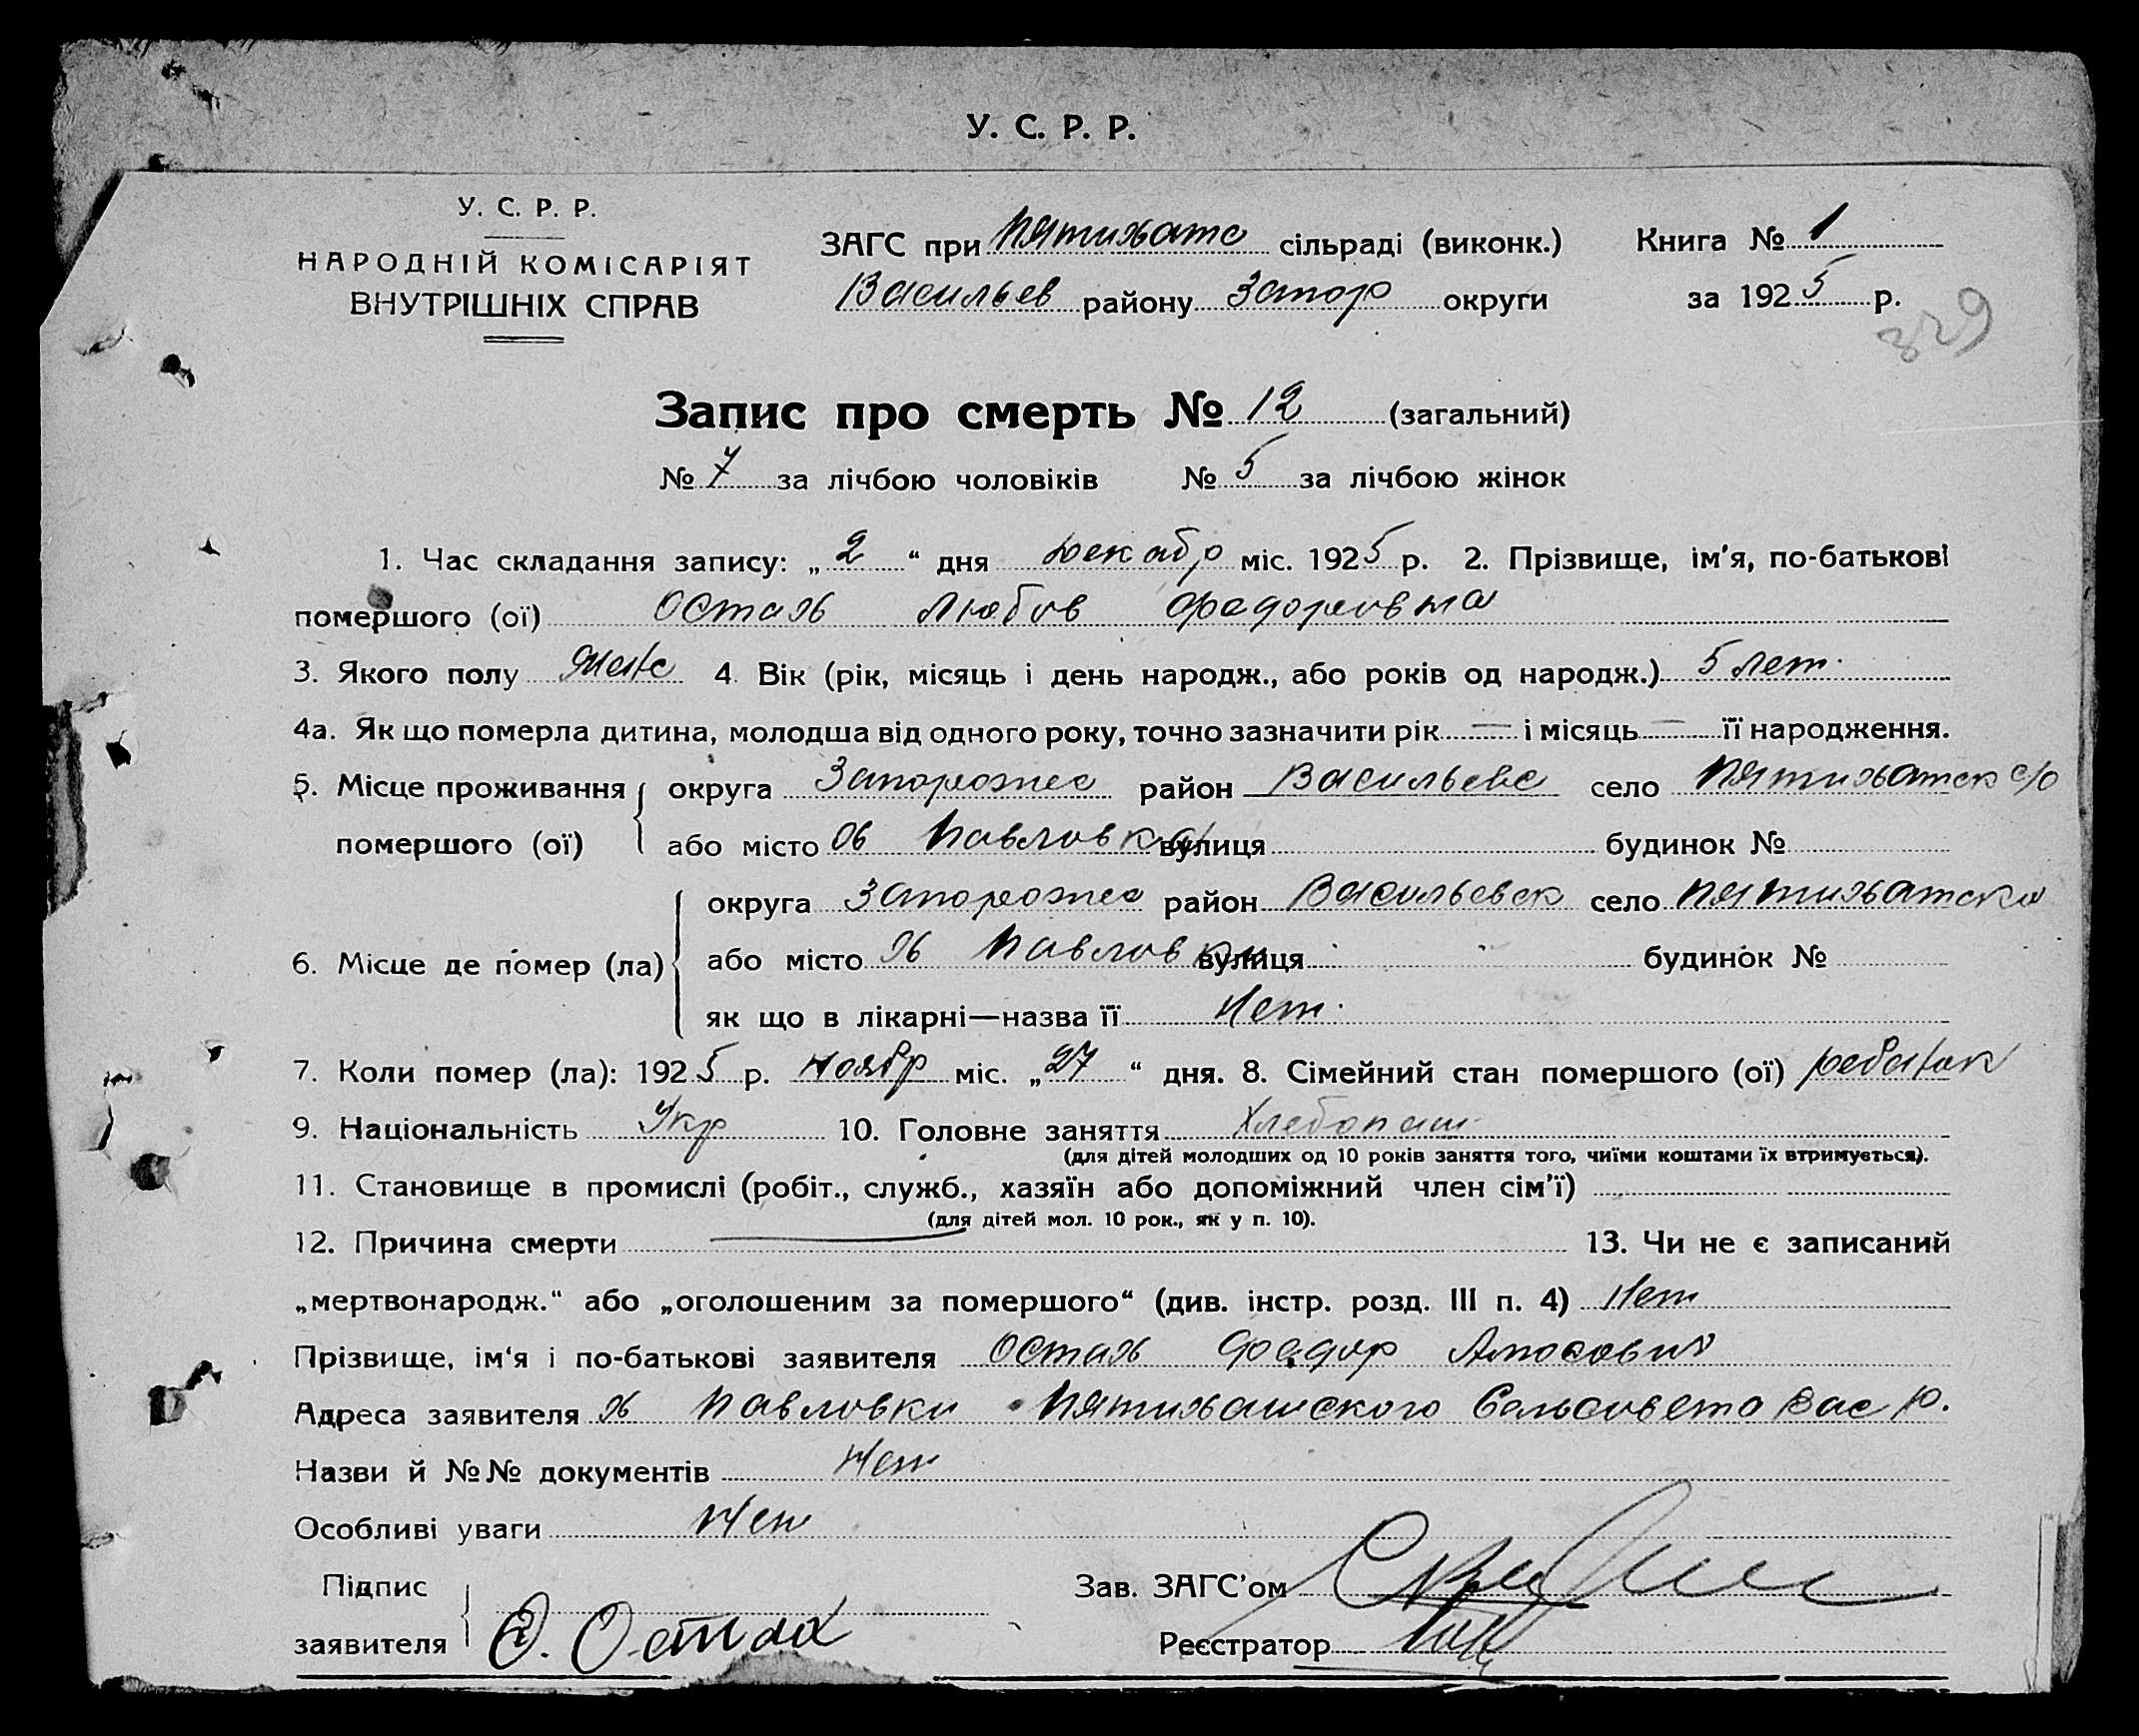 У. С. Р. Р.
У. С. Р. Р.
НАРОДНІЙ КОМІСАРІЯТ
ВНУТРІШНІХ СПРАВ
ЗАГС при Пятихатс сільраді (виконк.)
Васильев району Запор округи
Книга № 1
за 1925 р.
329
Запис про смерть № 12 (загальний)
№ 7 за лічбою чоловіків № 5 за лічбою жінок
1. Час складання запису: „2“ дня декабр міс. 1925 р. 2. Прізвище, ім'я, по-батькові
помершого (ої) Остах Любов Федоровна
3. Якого полу женс 4. Вік (рік, місяць і день народж., або років од народж.) 5 лет.
4а. Як що померла дитина, молодша від одного року, точно зазначити рік — і місяць — її народження.
5. Місце проживання округа Запорожс район Васильевс село Пятихатск с/с
помершого (ої) або місто Павловка вулиця будинок №
округа Запорожс район Васильевск село Пятихатски
6. Місце де помер (ла) або місто х Павловки вулиця будинок №
як що в лікарні—назва її Нет.
7. Коли помер (ла): 1925 р. Ноябр міс. „27“ дня. 8. Сімейний стан помершого (ої)
9. Національність Укр 10. Головне заняття Хлебопаш
(для дітей молодших од 10 років заняття того, чиїми коштами їх втримується).
11. Становище в промислі (робіт., служб., хазяїн або допоміжний член сім'ї)
(для дітей мол. 10 рок., як у п. 10).
12. Причина смерти — 13. Чи не є записаний
„мертвонародж.“ або „оголошеним за помершого“ (див. інстр. розд. III п. 4) Нет
Прізвище, ім'я і по-батькові заявителя Остах Федор Амосович
Адреса заявителя х Павловки Пятихатского Сельсовета Вас р.
Назви й №№ документів Нет
Особливі уваги Нет
Підпис
заявителя Ф. Остах
Зав. ЗАГС'ом
Реєстратор